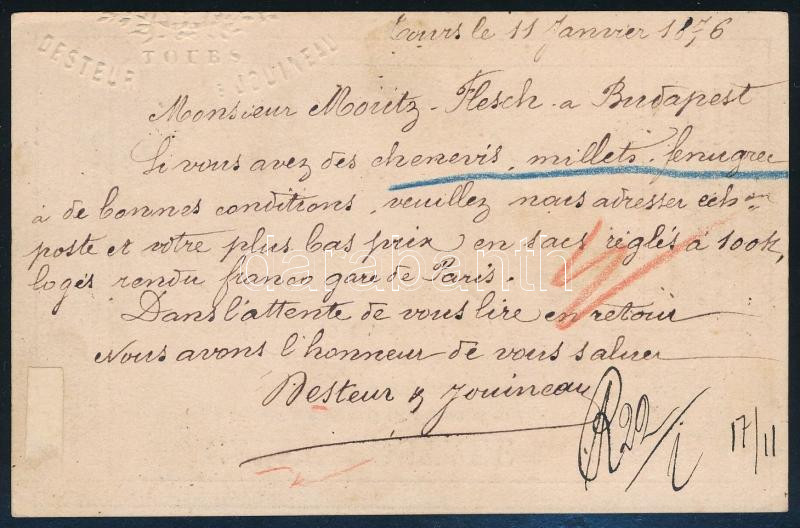 DESTEUR & JOUINEAU
TOURS
Tours le 11 Janvier 1876
Monsieur Moritz-Flesch-a Budapest
Si vous avez des chenevis, millets, fenugrec
à de bonnes conditions, veuillez nous adresser éch^on
poste et votre plus bas prix en sacs réglés à 100K,
logés rendu franco gare de Paris.
Dans l'attente de vous lire en retour
Nous avons l'honneur de vous saluer
Desteur & Jouineau
R 22/i
17/11
darabanth